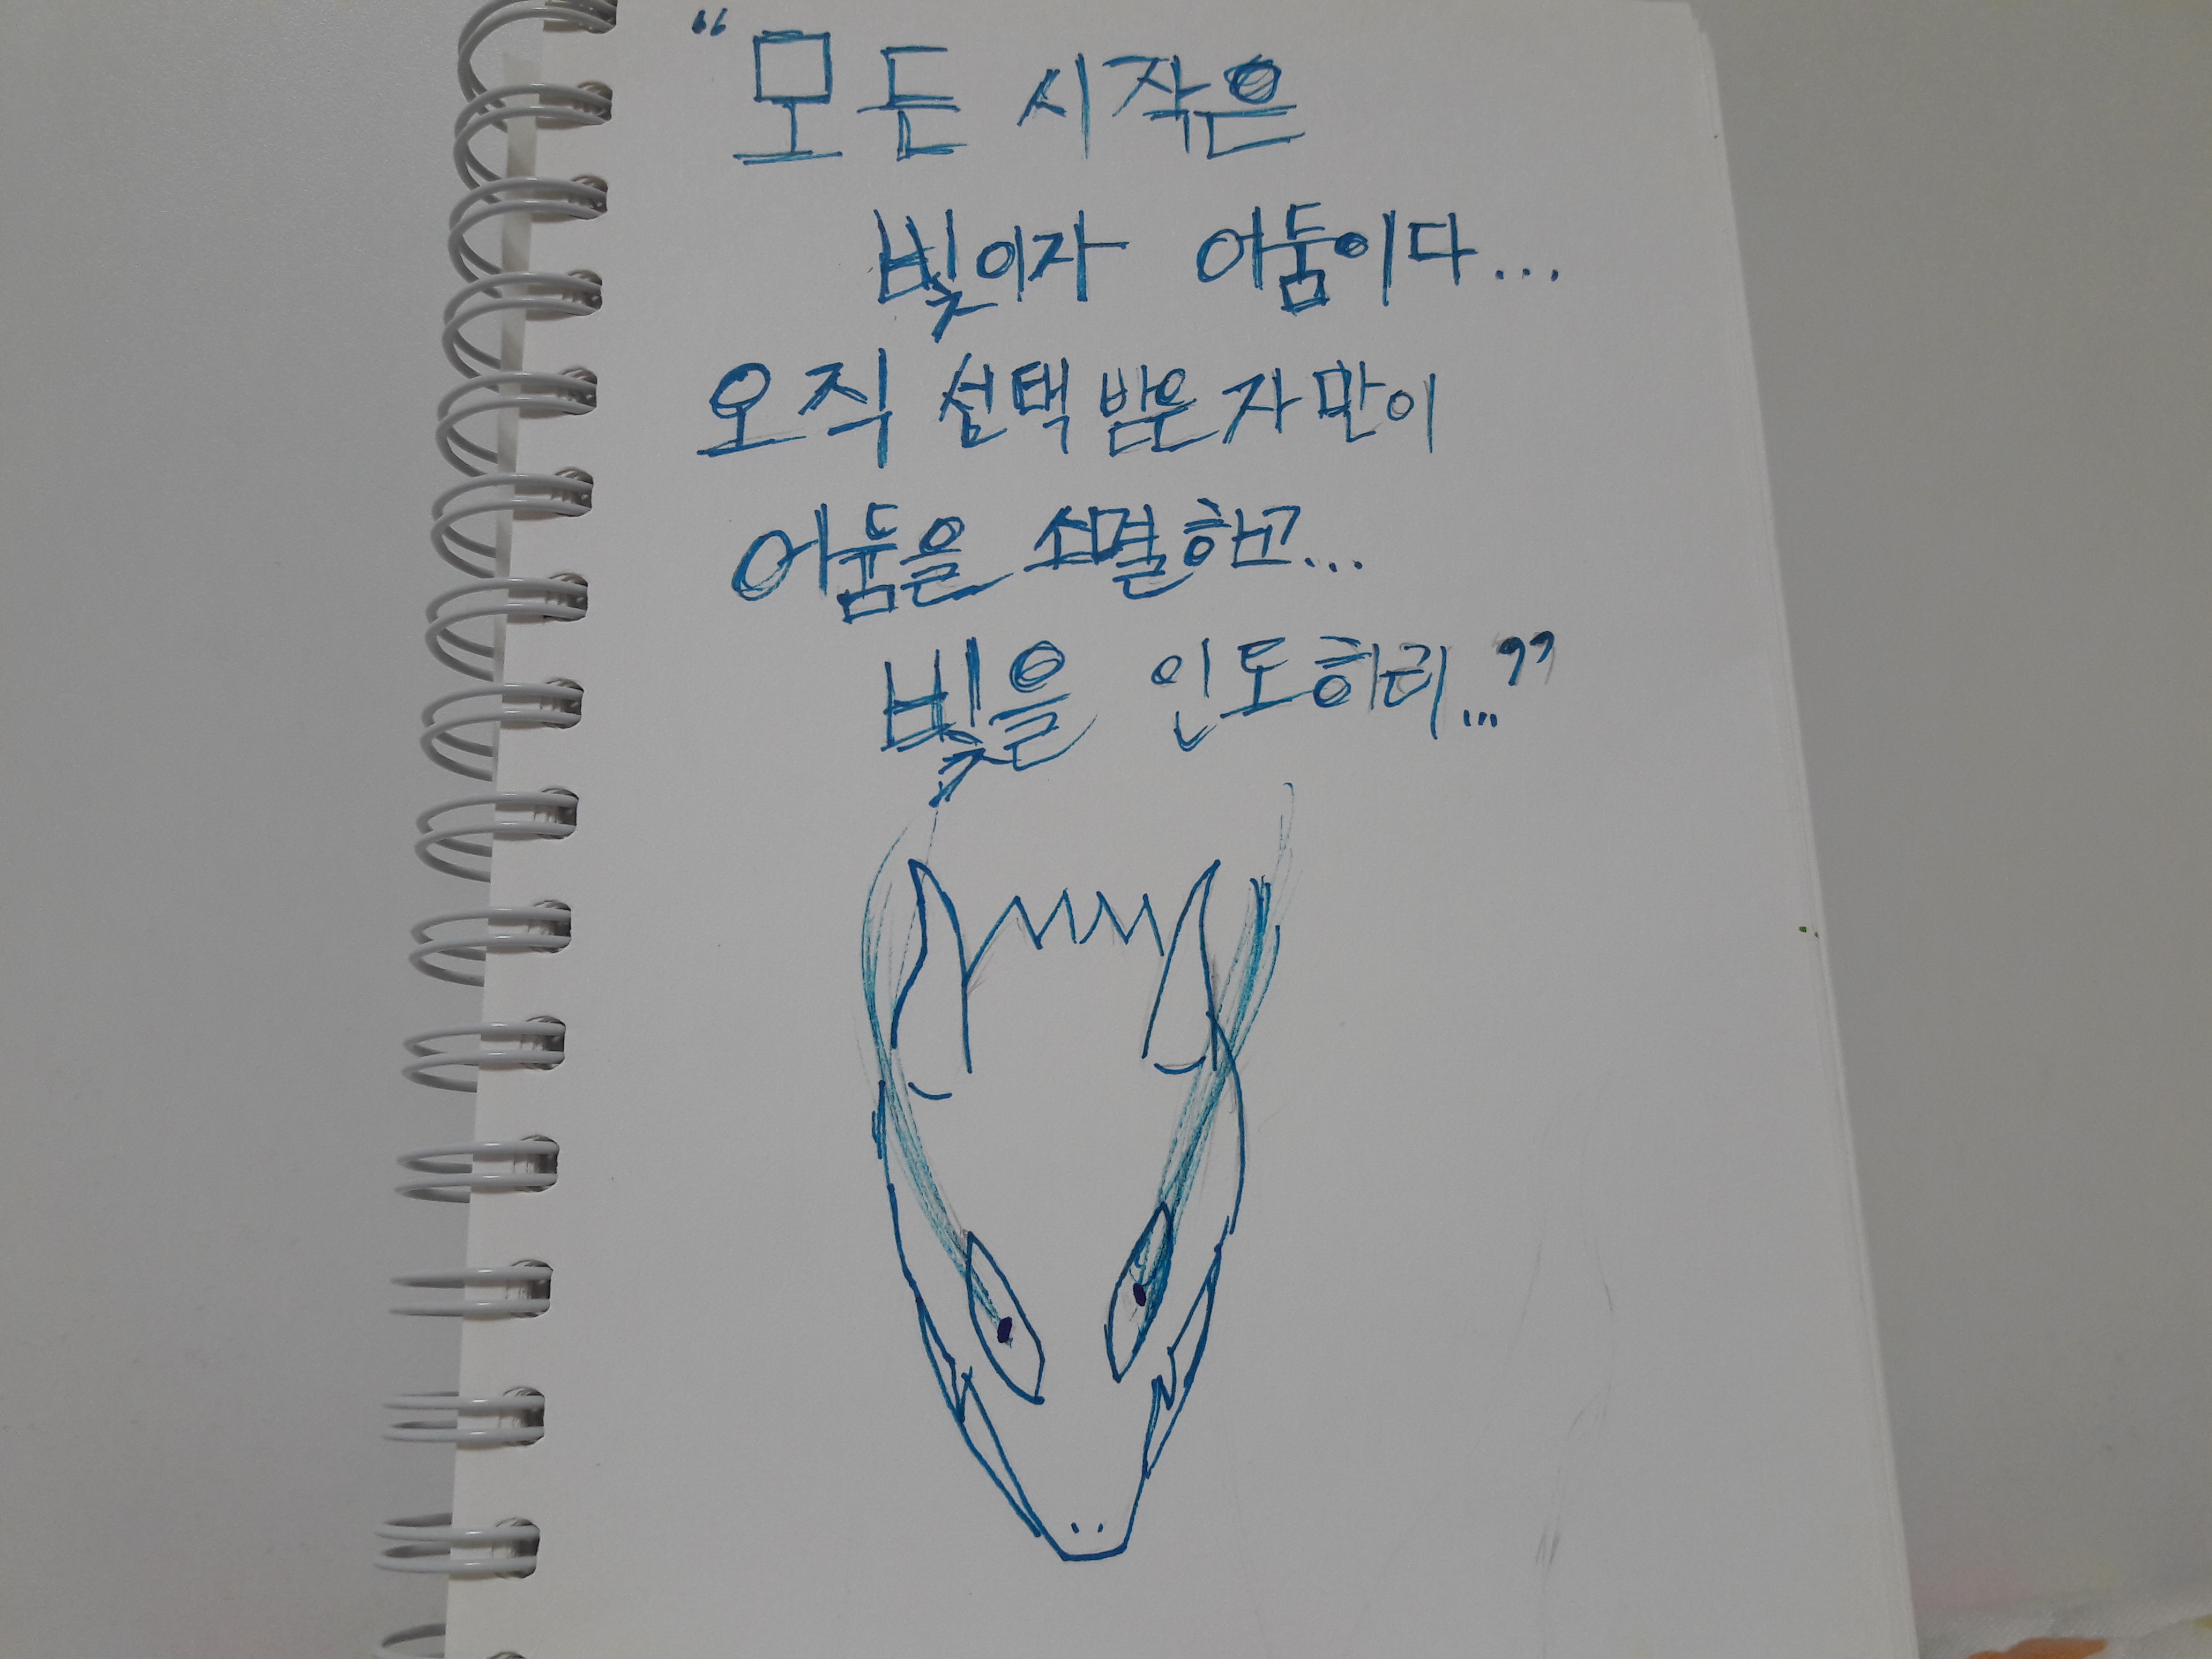 “모든 시작은
빛이자 어둠이다...
오직 선택 받은자만이
어둠을
빛을 인도하리...”